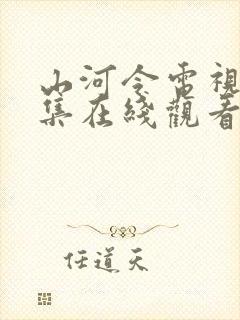 山河令電視
集在綫觀看
任道天